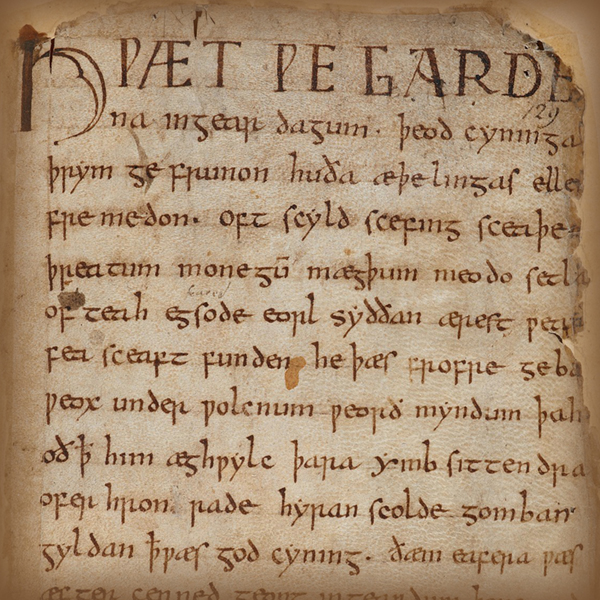 HǷÆT ǷE GARDE
129
na ingear dagum · þeod cyninga
þrym ge frunon huða æþelingas elle
fremedon · oft scyld scefing sceaþe
þreatum monegū mægþum meodo setla
of teah egsode eorl syððan ærest ƿear
fea sceaft funden he þæs frofre geba
ƿeox under ƿolcnum ƿeorð myndum þah
oð ꝥ him æghƿylc þara ymb sittendra
ofer hron rade hyran scolde gomban
gyldan ꝥ ƿæs god cyning · ðæm eafera ƿæs
æfter cenned geong ingeardum